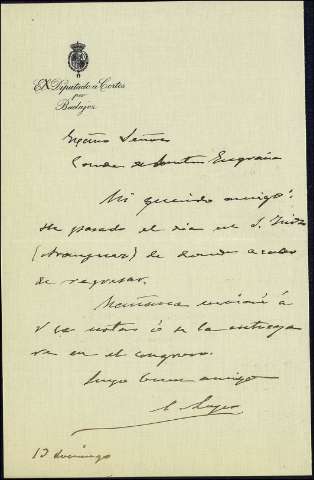 EX Diputado a Cortes
por
Badajoz
Señor
Conde de Santa Engracia
Mi querido amigo:
He pasado el dia en S. Isidro
(Aranjuez) de donde acabo
de regresar.
Mañana enviaré á
V las notas ó se las entregaré
en el congreso.
Suyo buen amigo
13 domingo